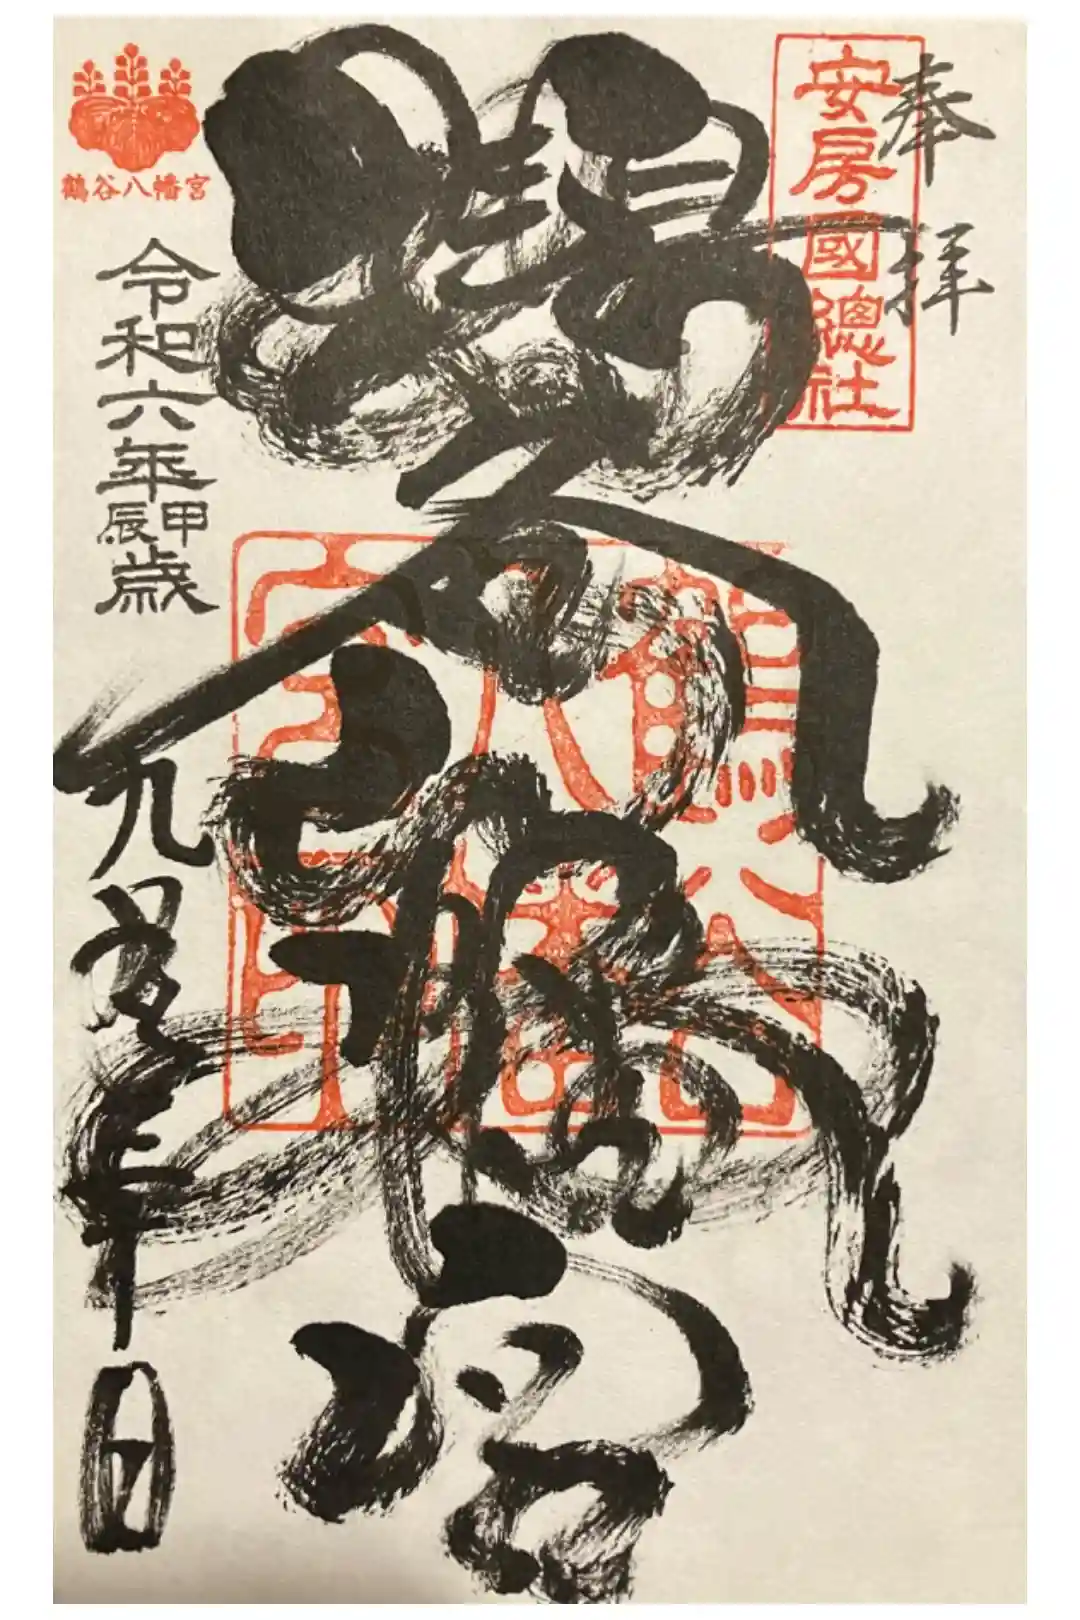 奉拝
安房國總社
鶴谷八幡宮
鶴谷八幡宮
令和六年甲辰歳
九月二十日